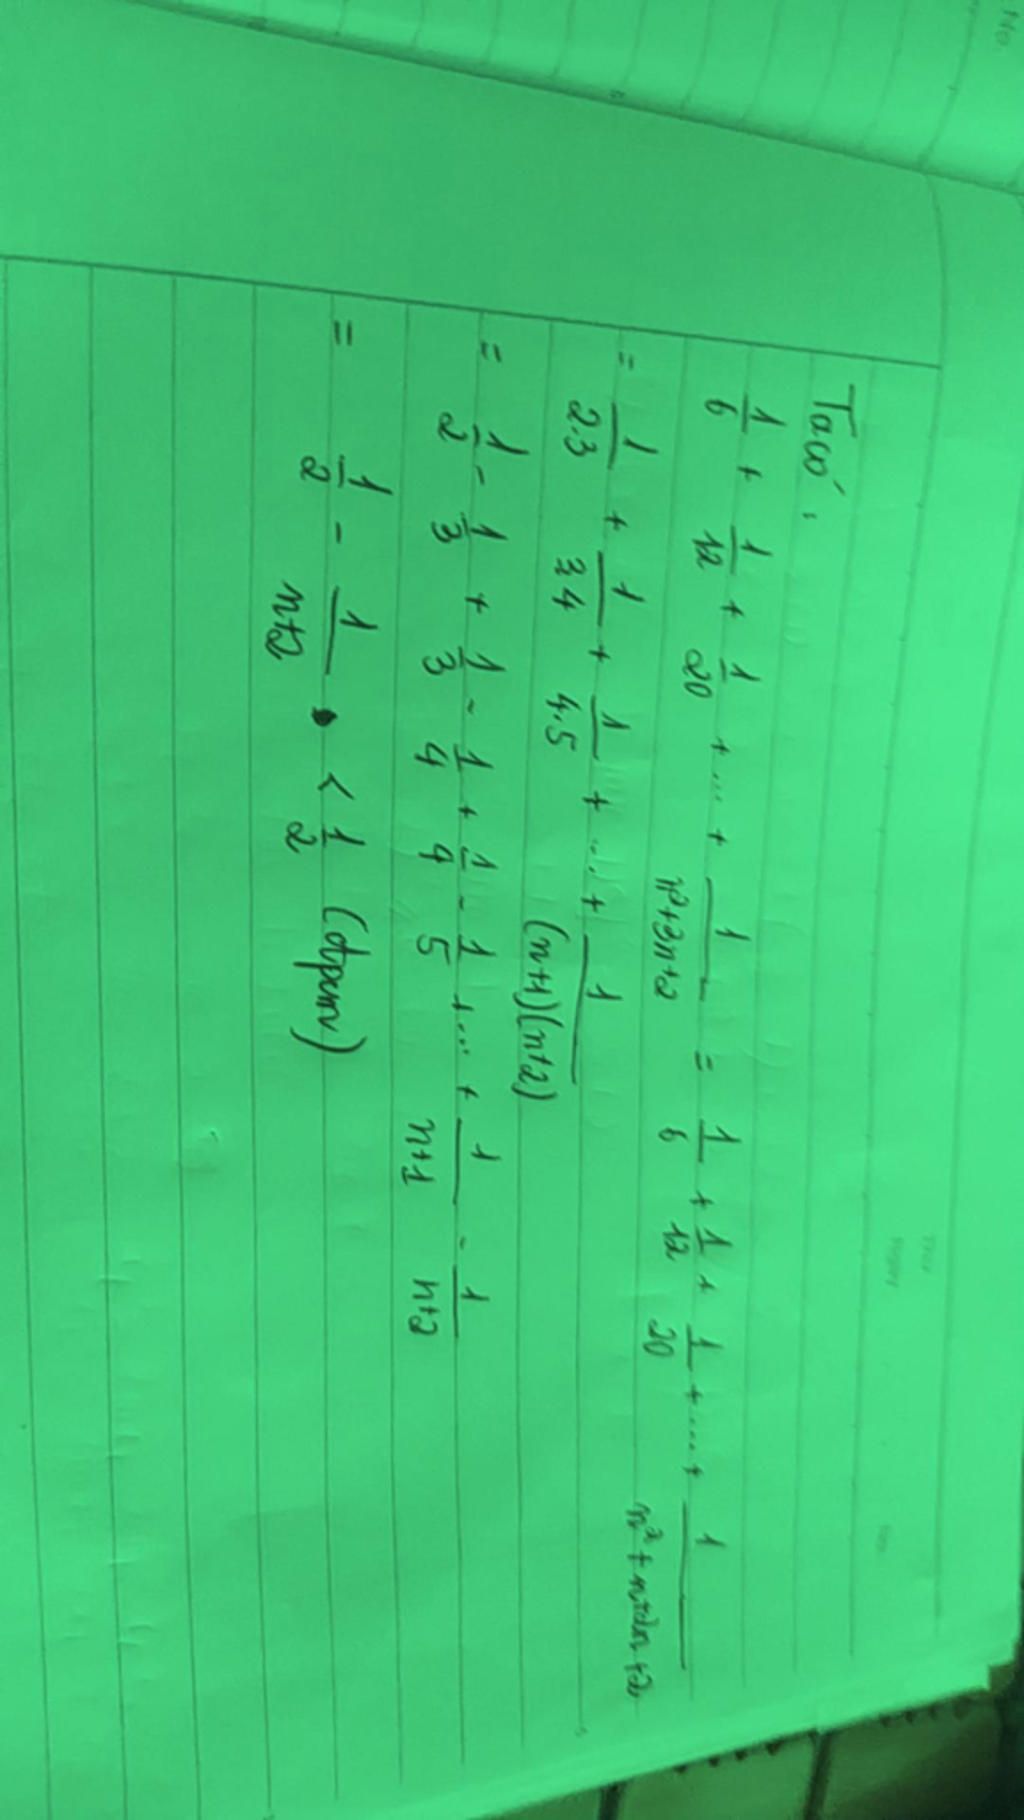 Ta có,
1/6 + 1/12 + 1/20 + ... + 1/(n²+3n+2) = 1/6 + 1/12 + 1/20 + .... + 1/(n²+n+2n+2)
= 1/2.3 + 1/3.4 + 1/4.5 + ... + 1/(n+1)(n+2)
= 1/2 - 1/3 + 1/3 - 1/4 + 1/4 - 1/5 + ... + 1/(n+1) - 1/(n+2)
= 1/2 - 1/(n+2) < 1/2 (đpcm)
No